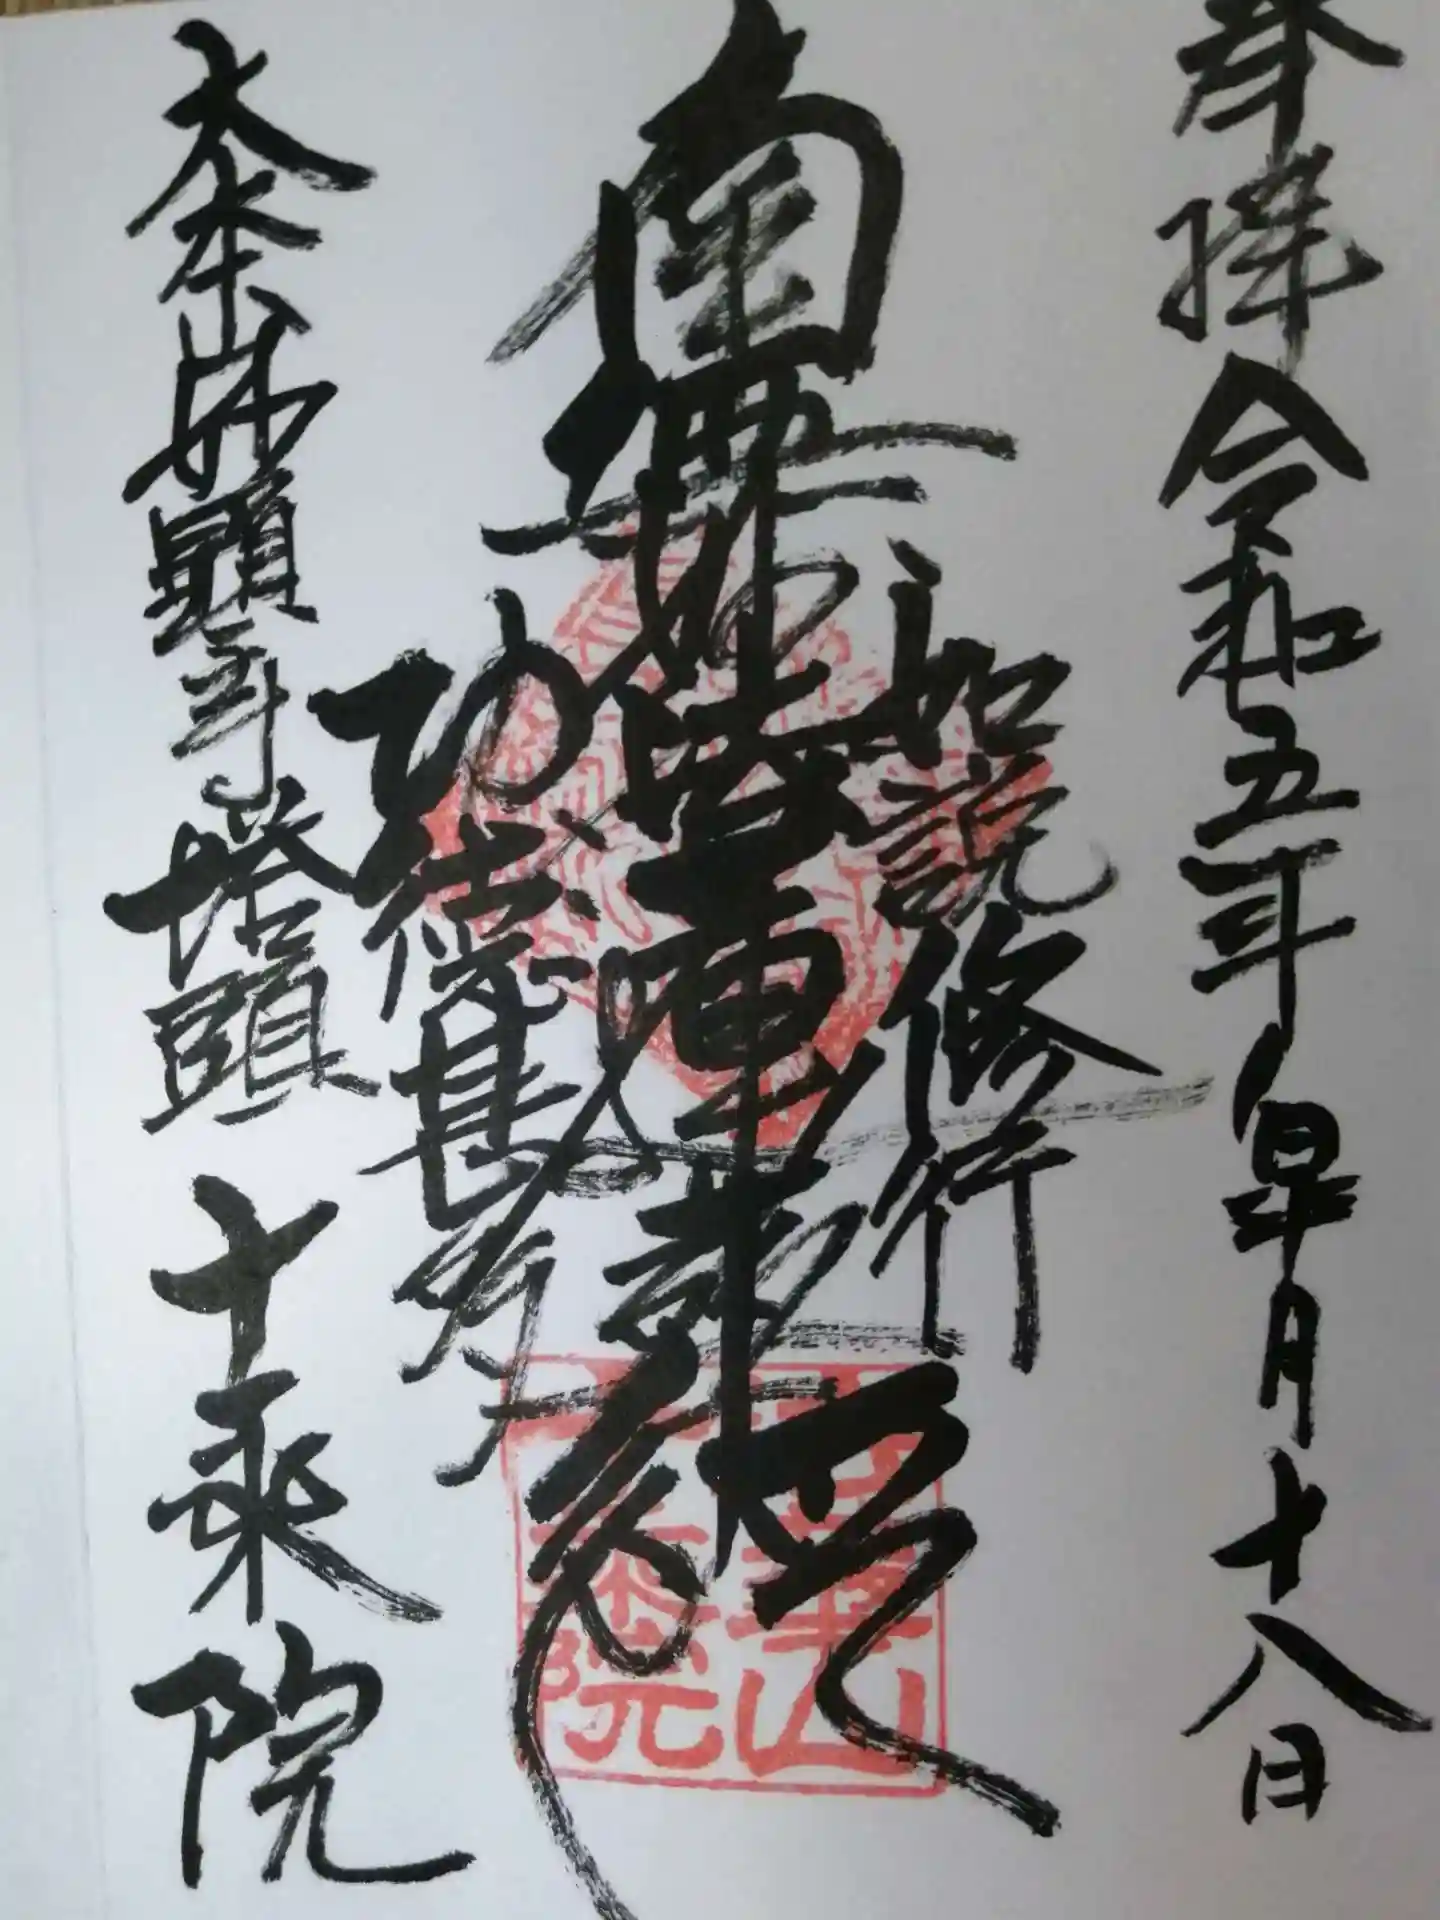 奉拝 令和五年皐月十八日
如説修行
南無妙法蓮華経
功徳甚多
大本山妙顕寺塔頭 十乗院